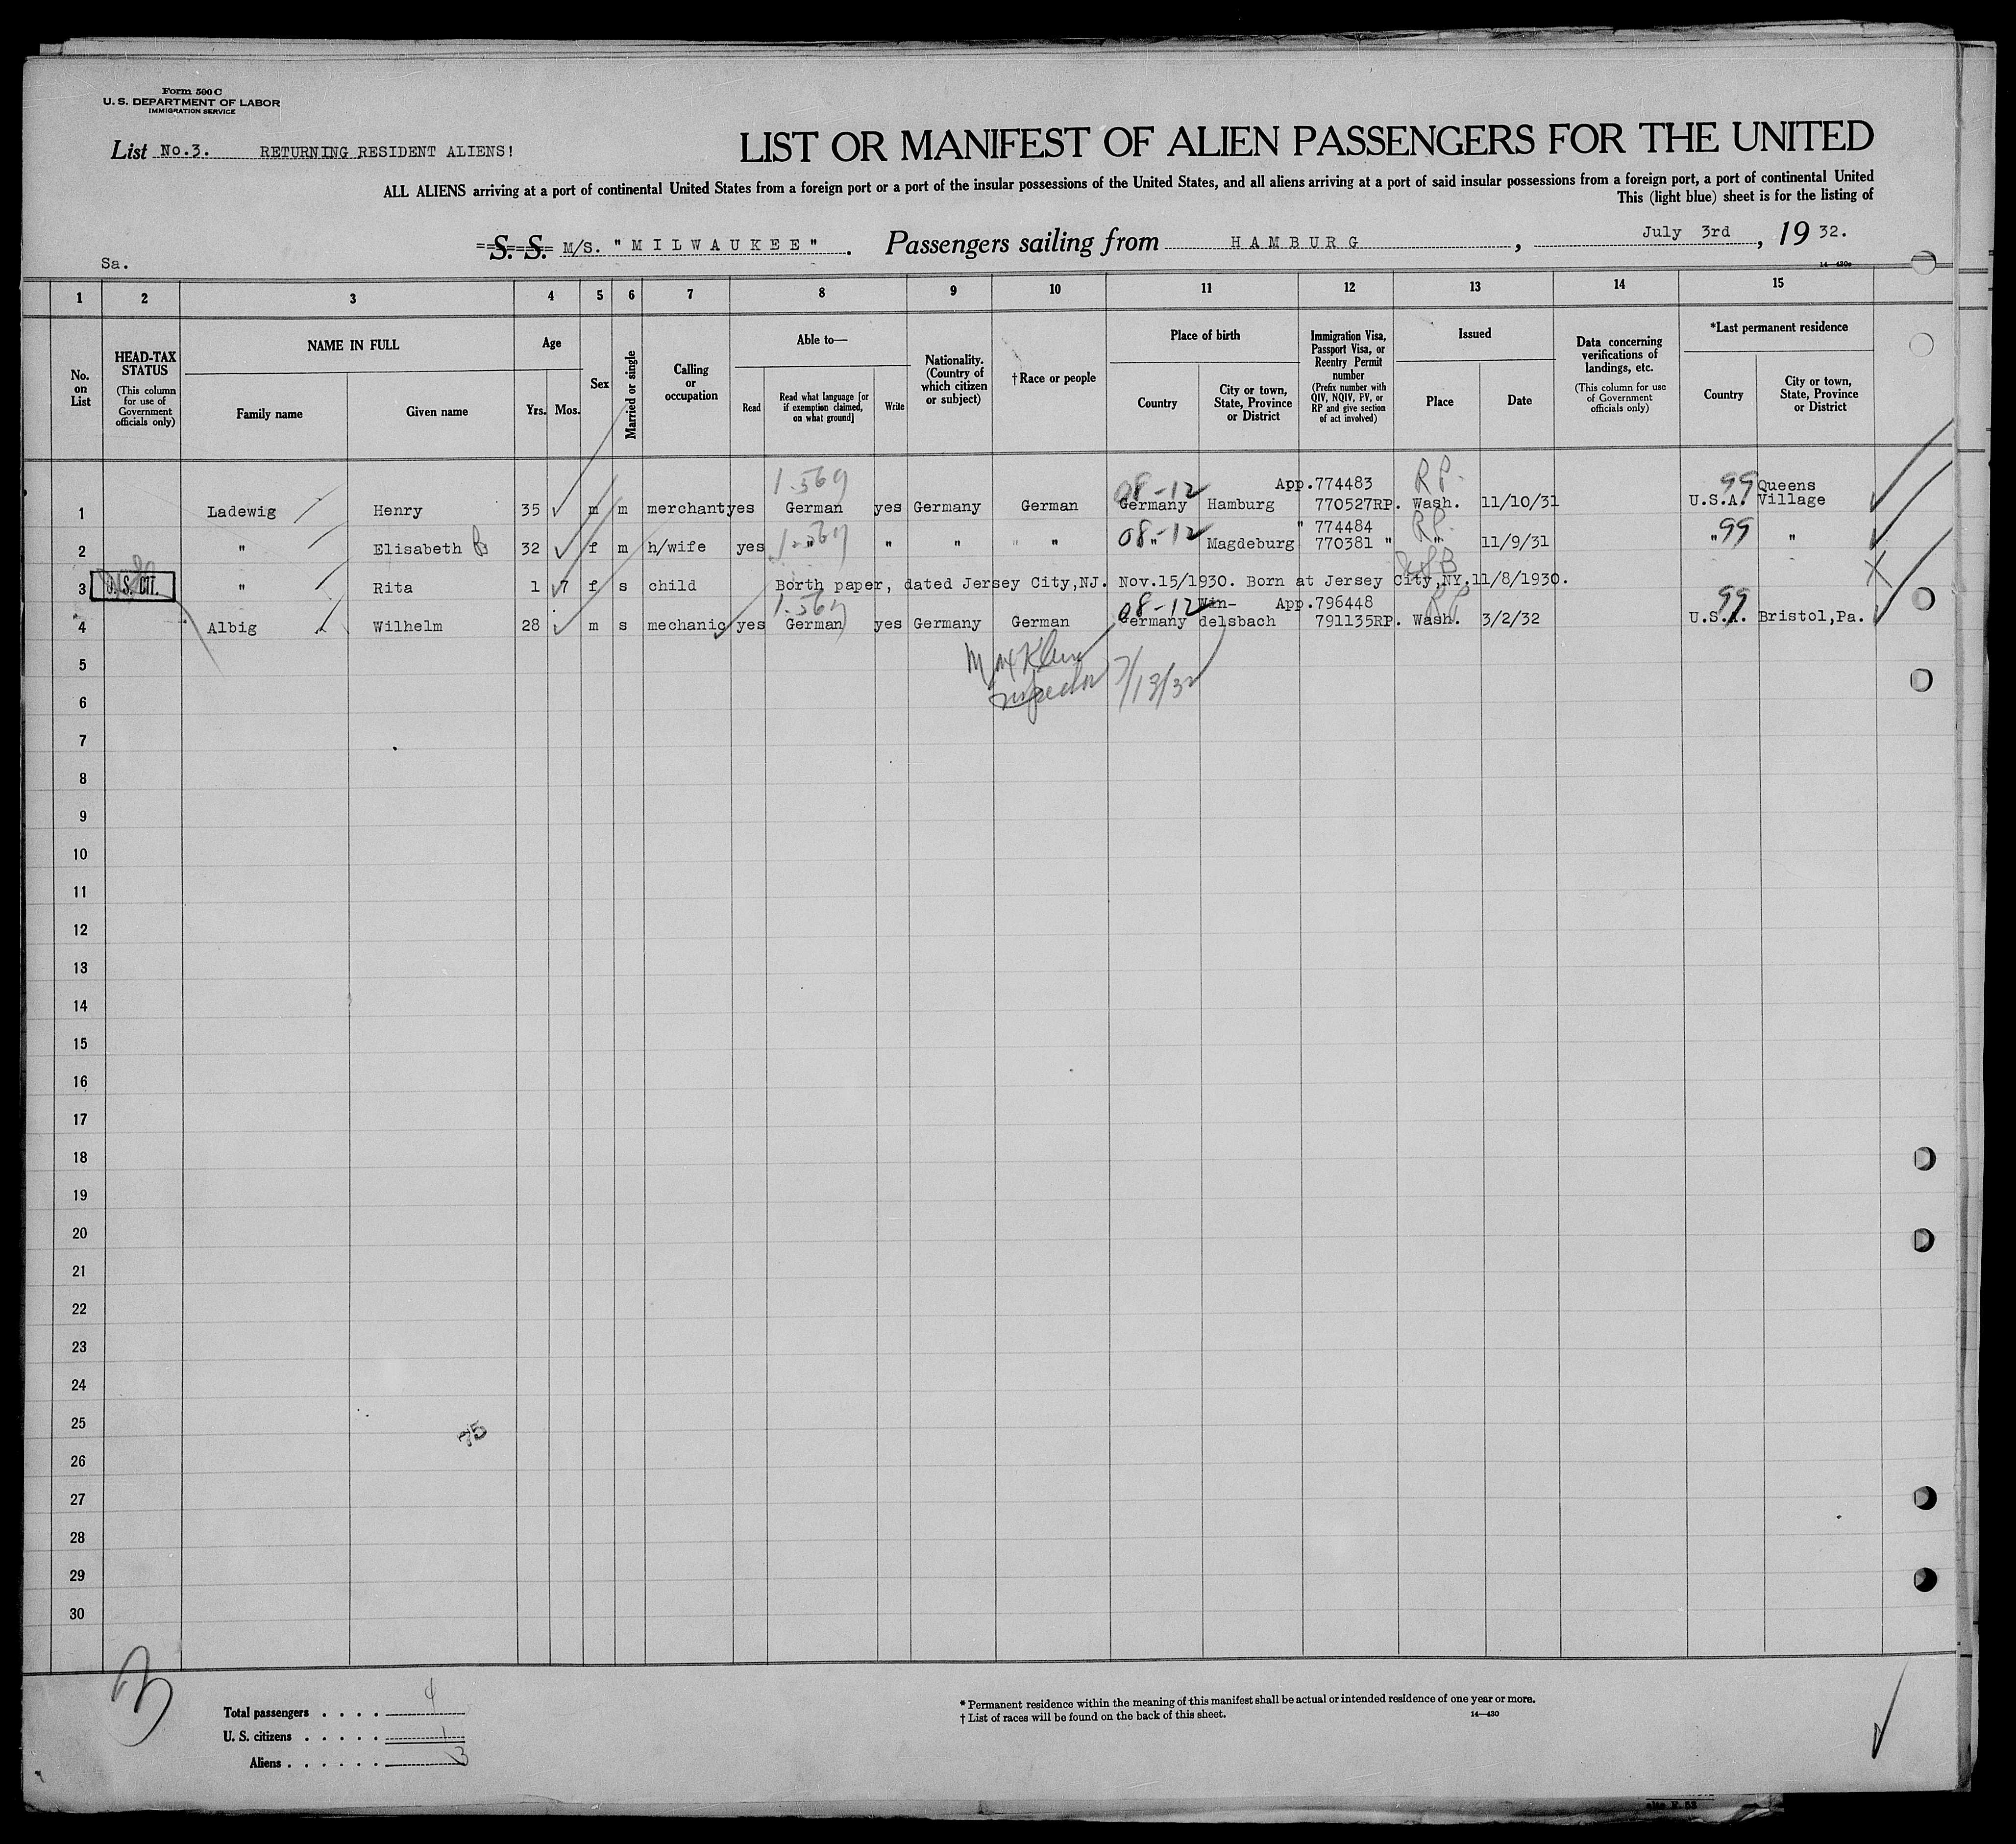 Form 500 C
U. S. DEPARTMENT OF LABOR
IMMIGRATION SERVICE
List No.3. RETURNING RESIDENT ALIENS!
LIST OR MANIFEST OF ALIEN PASSENGERS FOR THE UNITED
ALL ALIENS arriving at a port of continental United States from a foreign port or a port of the insular possessions of the United States, and all aliens arriving at a port of said insular possessions from a foreign port, a port of continental United
This (light blue) sheet is for the listing of
S. S. M/S. "MILWAUKEE". Passengers sailing from HAMBURG, July 3rd, 19 32.
Sa.
14—430c
1 2 3 4 5 6 7 8 9 10 11 12 13 14 15
No. on List
HEAD-TAX STATUS
(This column for use of Government officials only)
NAME IN FULL
Family name
Given name
Age
Yrs.
Mos.
Sex
Married or single
Calling or occupation
Able to—
Read
Read what language [or if exemption claimed, on what ground]
Write
Nationality. (Country of which citizen or subject)
† Race or people
Place of birth
Country
City or town, State, Province or District
Immigration Visa, Passport Visa, or Reentry Permit number
(Prefix number with QIV, NQIV, PV, or RP and give section of act involved)
Issued
Place
Date
Data concerning verifications of landings, etc.
(This column for use of Government officials only)
*Last permanent residence
Country
City or town, State, Province or District
1.569 08-12 App.774483 RP. 99 Queens
1 Ladewig Henry 35 m m merchant yes German yes Germany German Germany Hamburg 770527RP. Wash. 11/10/31 U.S.A. Village
1-569 08-12 " 774484 RP. 99
2 " Elisabeth B 32 f m h/wife yes " " " " " " Magdeburg 770381 " " 11/9/31 " "
3 U. S. CIT. " Rita 1 7 f s child Borth paper, dated Jersey City,NJ. Nov.15/1930. Born at Jersey City,NY.11/8/1930.
1.569 08-12 Win- App.796448 RP 99
4 Albig Wilhelm 28 m s mechanic yes German yes Germany German Germany delsbach 791135RP. Wash. 3/2/32 U.S.A. Bristol,Pa.
Inspector 7/13/32
5
6
7
8
9
10
11
12
13
14
15
16
17
18
19
20
21
22
23
24
25
75
26
27
28
29
30
3
Total passengers . . . . 4
U. S. citizens . . . . . 1
Aliens . . . . . . 3
* Permanent residence within the meaning of this manifest shall be actual or intended residence of one year or more.
† List of races will be found on the back of this sheet.
14—430